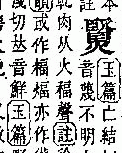 本
玉篇亡結
音蔑不明
乾肉从火稫聲註
或作楅煏亦作
切𠀤音鮮玉篇